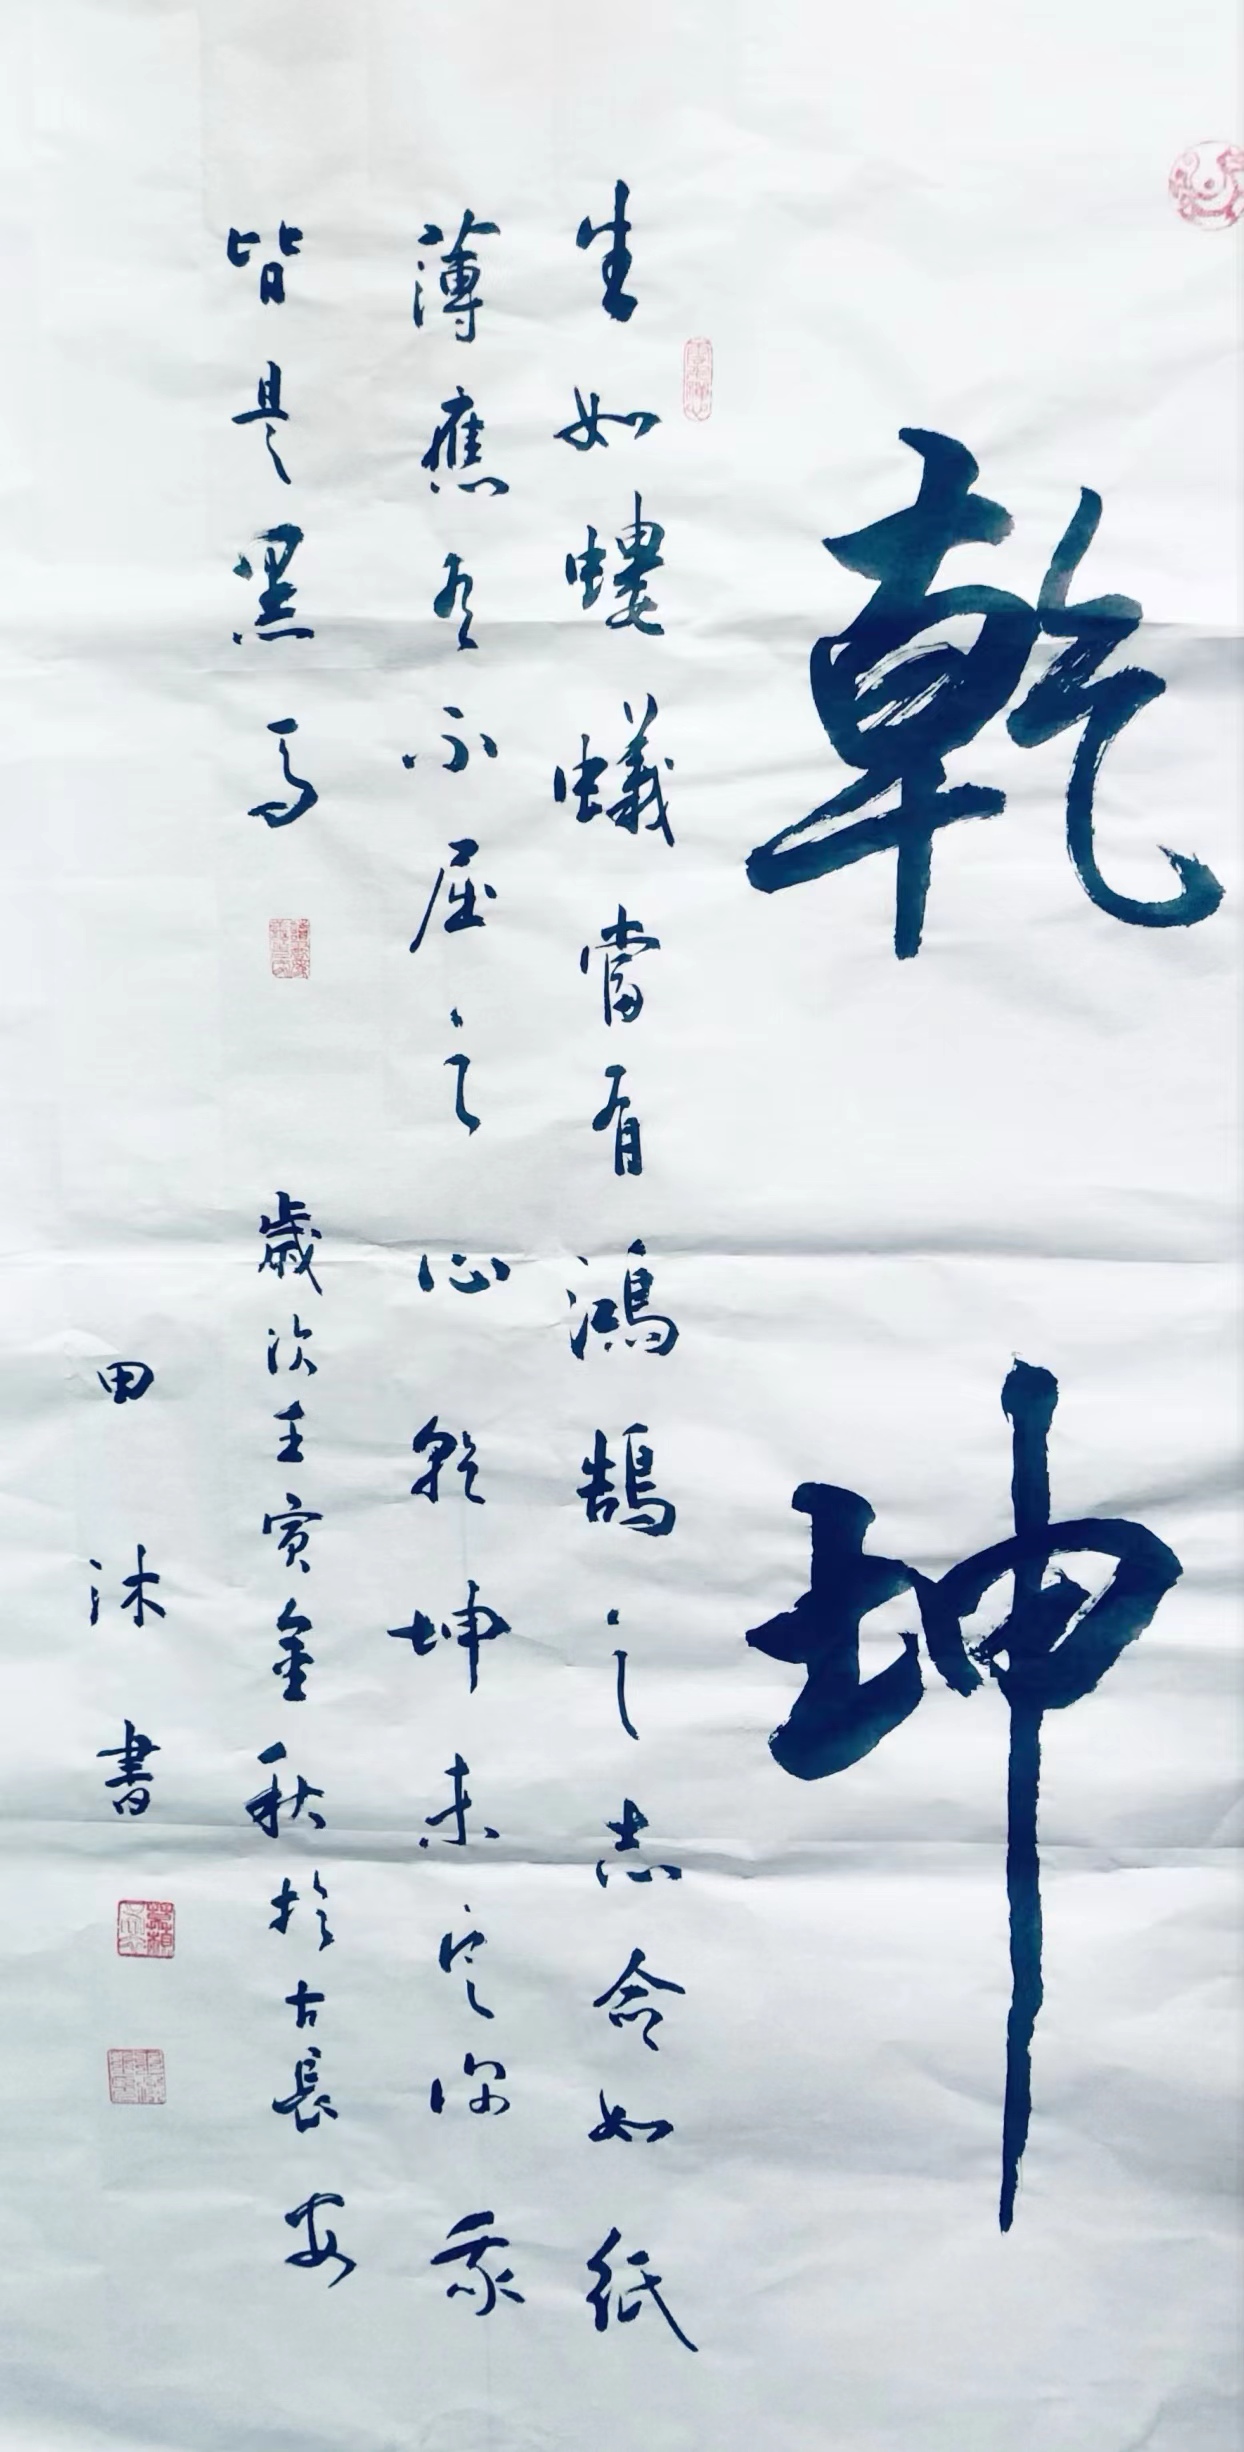 乾坤
生如螻蟻當有鴻鵠之志命如紙
薄應有不屈之心乾坤未定你我
皆是黑馬
歲次壬寅金秋於古長安
田沐書